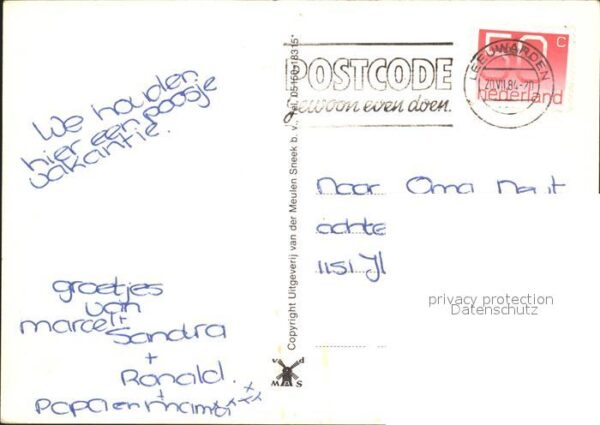 We houden
hier een poosje
vakantie.
groetjes
van
marcel +
Sandra
+
Ronald.
+
Papa en mama xxxx
Copyright Uitgeverij van der Meulen Sneek b. v., Tel. 05150-18315*
v d
M S
POSTCODE
gewoon even doen.
LEEUWARDEN
20.VII.84
50 c
nederland
naar Oma
achte
1151 Jl
privacy protection
Datenschutz